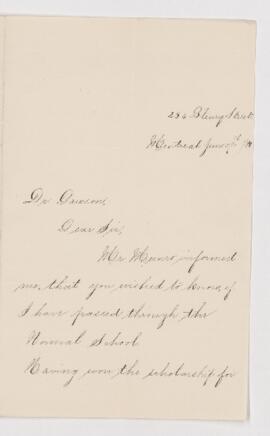 Bleury Street
Montreal June
Dr Dawson,
Dear Sir,
Mr Munro informed
me, that you wished to know, if
I have passed through the
Normal School
Having won the scholarship for